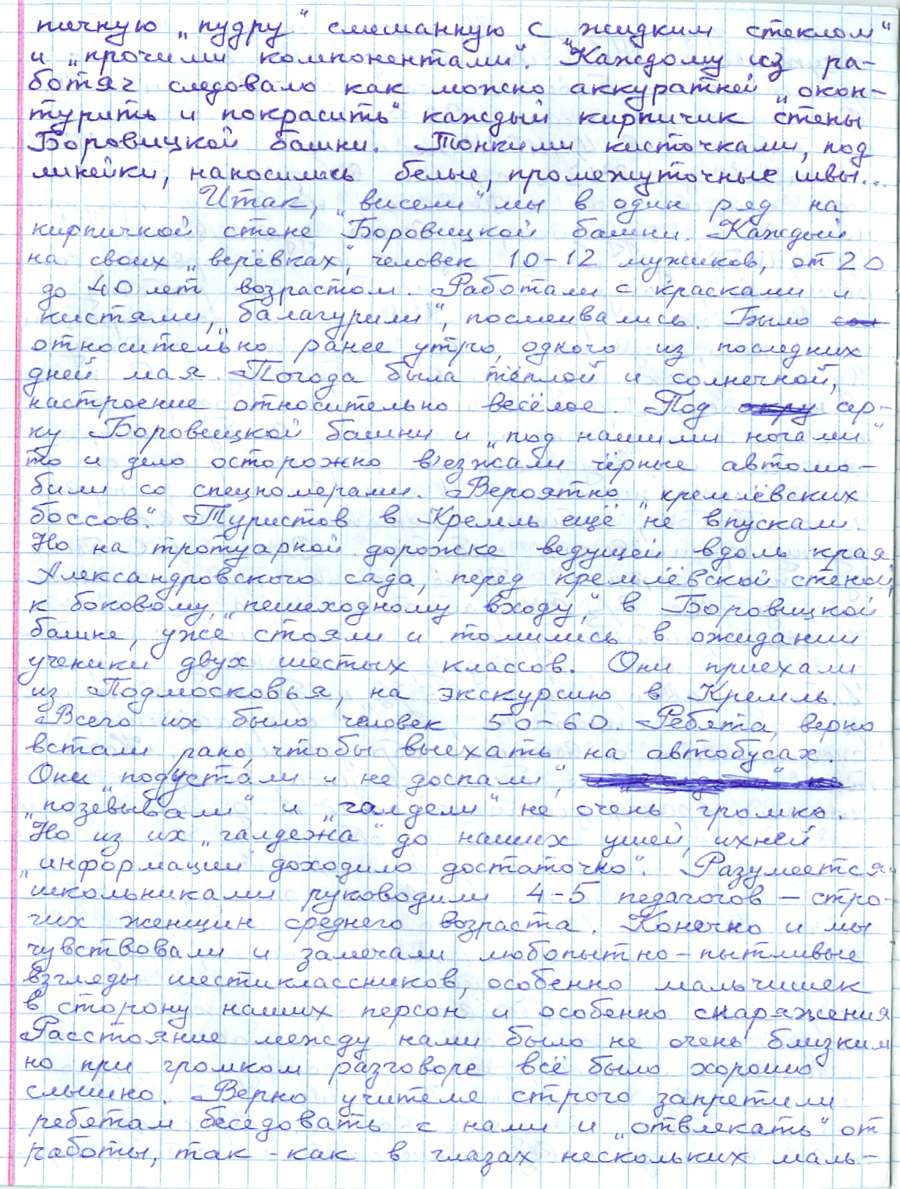 пичную „пудру" смешанную с „жидким стеклом"
и „прочими компонентами". Каждому из ра-
ботяг следовало как можно аккуратней „окон-
турить и покрасить" каждый кирпичик стены
Боровицкой башни. Тонкими кисточками, под
линейки, наносились белые, промежуточные швы...
Итак, „висели" мы в один ряд на
кирпичной стене Боровицкой башни. Каждый
на своих „верёвках", человек 10-12 мужиков, от 20
до 40 лет возрастом. Работали с красками и
кистями, „балагурили", посмеивались. Было
относительно ранее утро, одного из последних
дней мая. Погода была тёплой и солнечной,
настроение относительно весёлое. Под ар-
ку Боровицкой башни и „под нашими ногами"
то и дело осторожно въезжали чёрные автомо-
били со спецномерами. Вероятно „кремлёвских
боссов". Туристов в Кремль ещё не впускали.
Но на тротуарной дорожке ведущей вдоль края
Александровского сада, перед кремлёвской стеной,
к боковому, „пешеходному входу", в Боровицкой
башне, уже стояли и томились в ожидании
ученики двух шестых классов. Они приехали
из Подмосковья, на экскурсию в Кремль.
Всего их было человек 50-60. Ребята, верно
встали рано, чтобы выехать на автобусах.
Они „подустали и не доспали",
„позевывали" и „галдели" не очень громко.
Но из их „галдежа" до наших ушей, ихней
„информации доходило достаточно". Разумеется
школьниками руководили 4-5 педагогов - стро-
гих женщин среднего возраста. Конечно и мы
чувствовали и замечали любопытно-пытливые
взгляды шестиклассников, особенно мальчишек
в сторону наших персон и особенно снаряжения
Расстояние между нами было не очень близким
но при громком разговоре всё было хорошо
слышно. Верно учителя строго запретили
ребятам беседовать с нами и „отвлекать" от
работы, так-как в глазах нескольких маль-